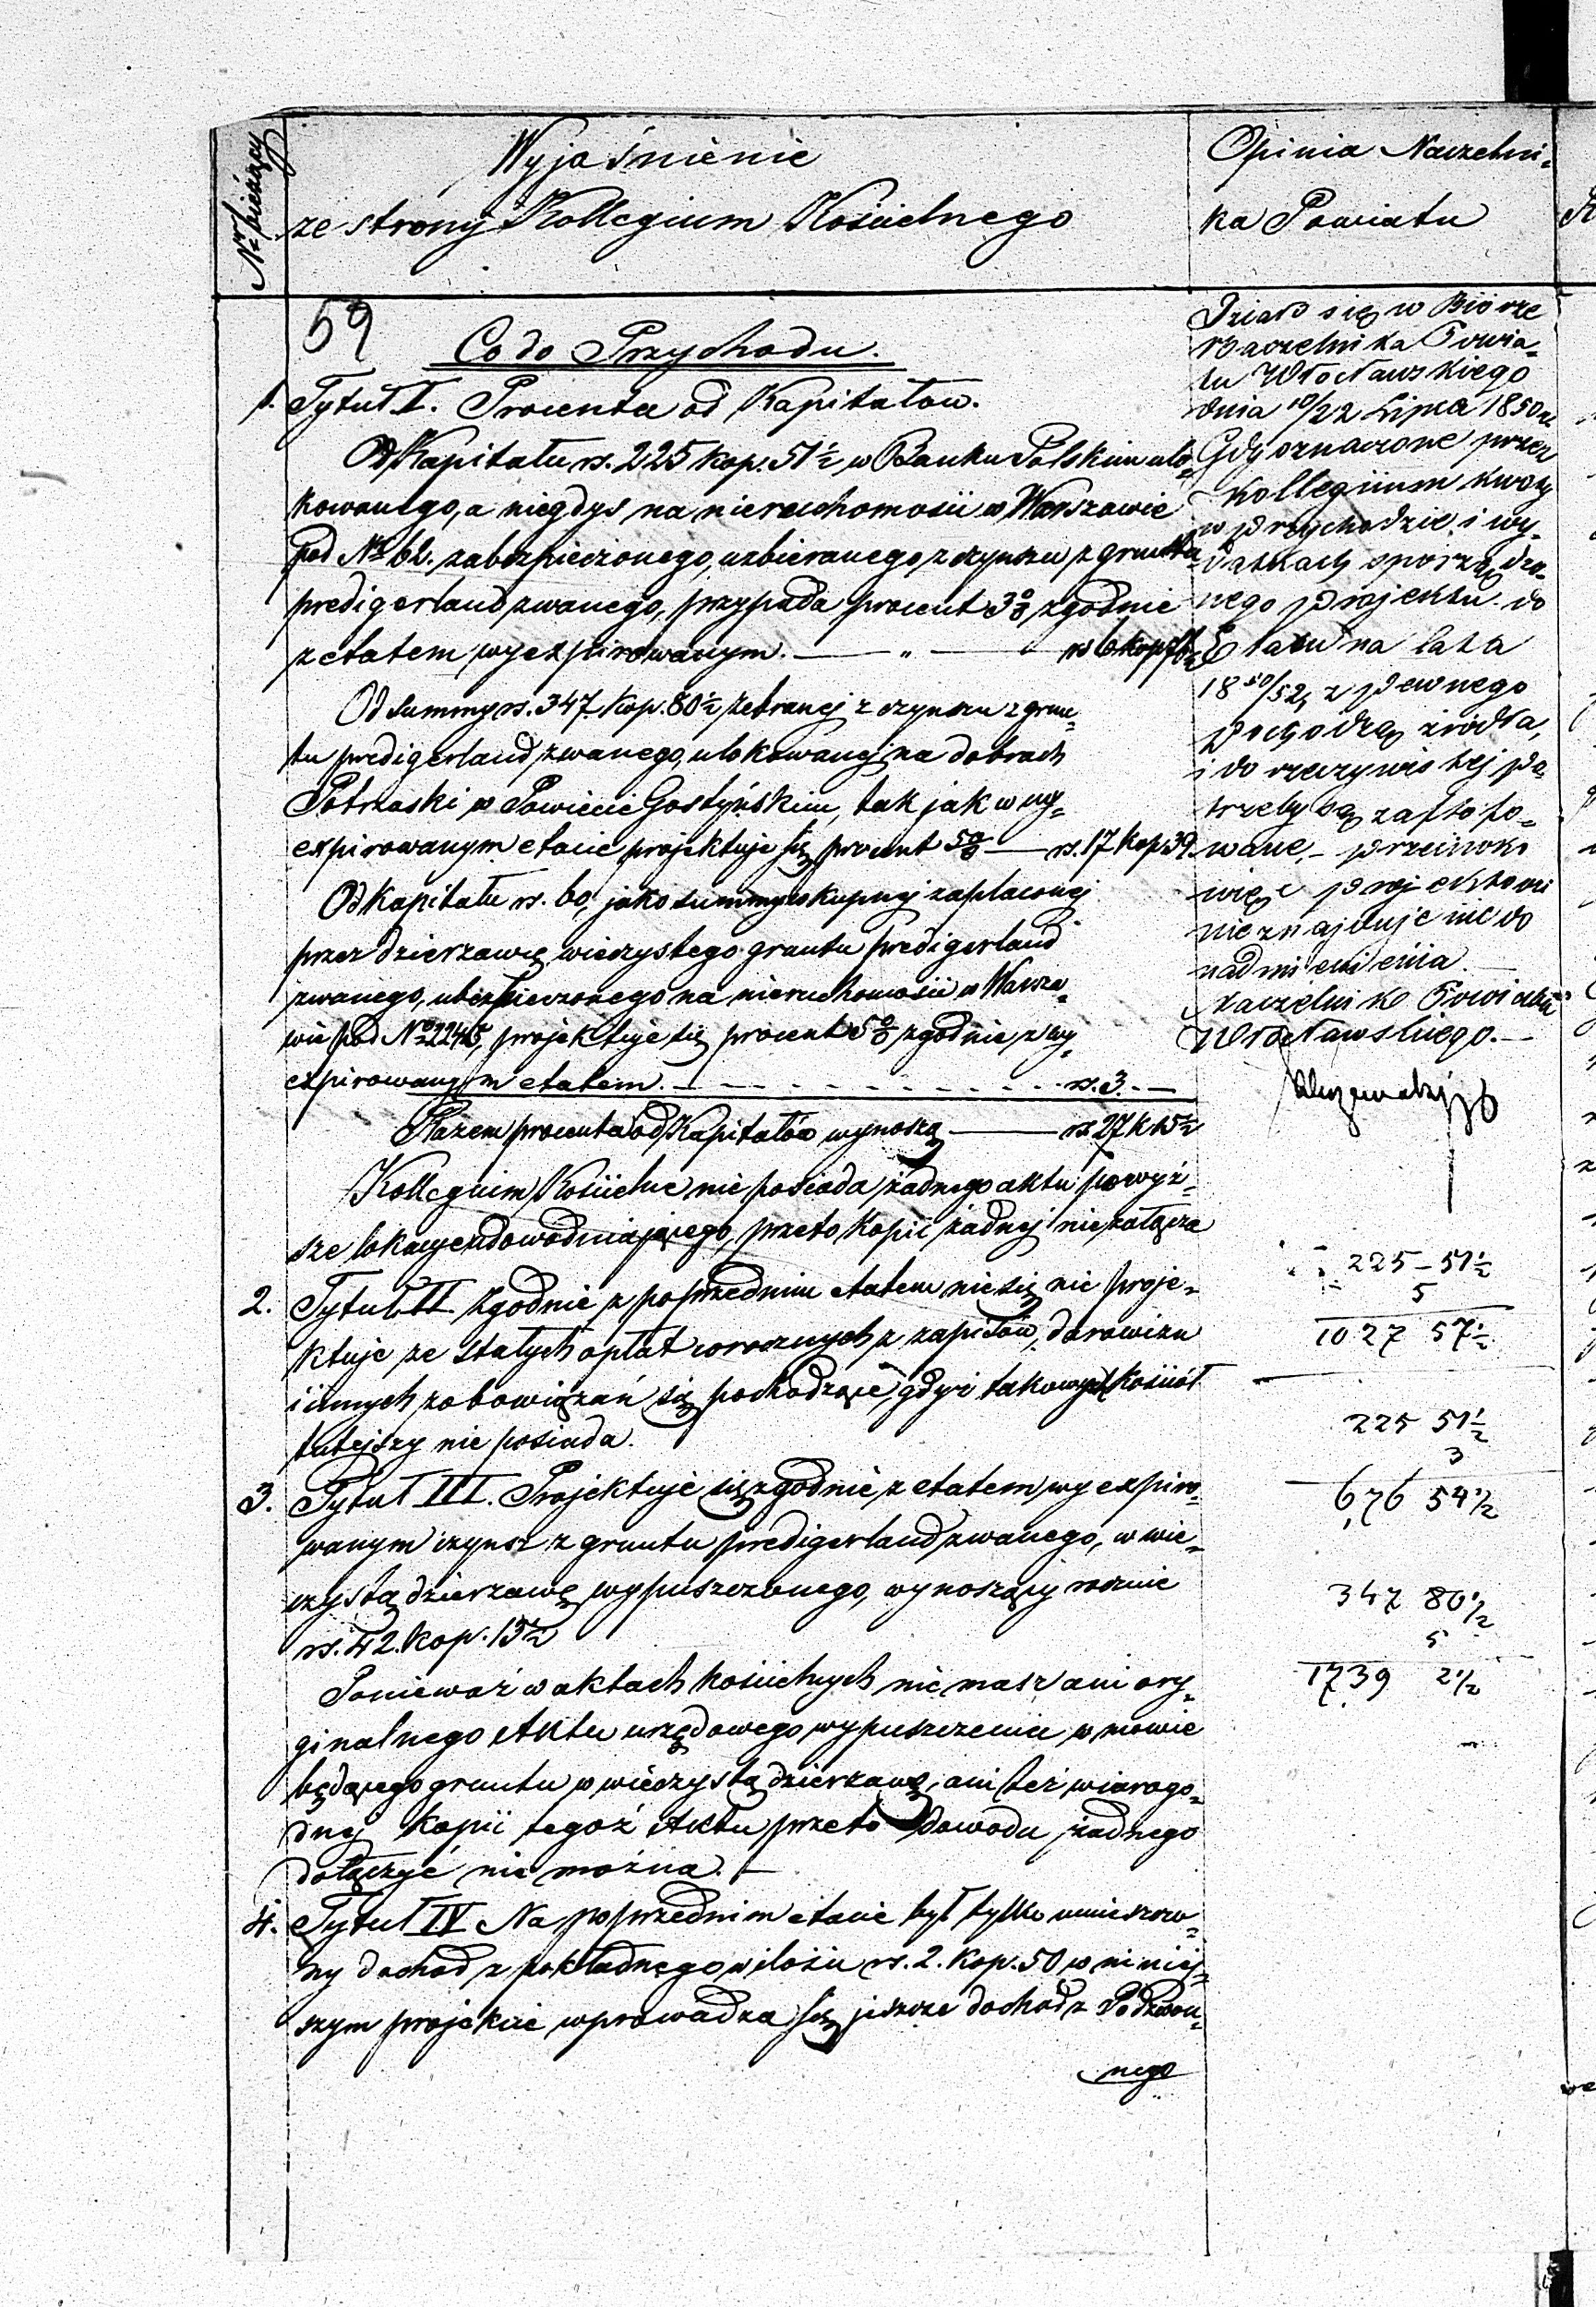 Nr bieżący
Wyjaśnienie
ze strony Kollegium Kościelnego
Opinia Naczelni=
ka Powiatu
59
Co do Przychodu.
1. Tytuł I. Procenta od Kapitałów.
Od Kapitału rs. 225 kop. 51½ w Banku Polskim ulo=
kowanego, a niegdyś na nieruchomości w Warszawie
pod No 62. zabezpieczonego, uzbieranego z czynszu z gruntu
predigerland zwanego, przypada procent 3% zgodnie
z etatem wyexpirowanym. — " — rs 6 kop 76½
Od Summy rs. 347. Kop. 80½ zebranej z czynszu z grun=
tu predigerland zwanego, ulokowanej na dobrach
Potrzaski w Powiecie Gostyńskim, tak jak w wy=
expirowanym etacie projektuje się procent 5% — rs. 17 kop 39.
Od Kapitału rs. 60, jako summy wkupnej zapłaconej
przez dzierżawcę wieczystego gruntu predigerland
zwanego, ubezpieczonego na nieruchomości w Warsza=
wie pod No 2245, projektuje się procent 5% zgodnie z wy=
expirowanym etatem. — rs. 3. —
Razem procenta od Kapitałów wynoszą — rs 27 k 15½
Kollegium Kościelne nie posiada żadnego aktu powyż=
sze lokacye udowodniającego, przeto Kopii żadnej nie załącza
2. Tytuł II. Zgodnie z poprzednim etatem nie się nie proje=
ktuje ze stałych opłat corocznych z zapisów, darowizn
i innych zobowiązań się pochodzące, gdyż takowych Kościół
tutejszy nie posiada.
3. Tytuł III. Projektuje się zgodnie z etatem wyexpiro=
wanym czynsz z gruntu predigerland zwanego, w wie=
czystą dzierżawę wypuszczonego, wynoszący rocznie
rs. 42. kop. 15½
Ponieważ w aktach kościelnych nie masz ani ory=
ginalnego Aktu urzędowego wypuszczenia w mowie
będącego gruntu w wieczystą dzierżawę, ani też wiarogo=
dnej Kopii tegoż Aktu przeto dowodu żadnego
dołączyć nie można. —
4. Tytuł IV Na poprzednim etacie był tylko umieszczo=
ny dochód z pokładnego w ilości rs. 2. kop. 50 w niniej=
szym projekcie wprowadza się jeszcze dochód z Podzwon=
nego
Działo się w Biórze
Naczelnika Powia=
tu Włocławskiego
dnia 10/22 Lipca 1850 r.
Gdy oznaczone przez
Kollegiium kwoty
w przychodzie i wy=
datkach sporządzo=
nego projektu do
Etatu na lata
1850/52, z pewnego
pochodzą źródła,
i do rzeczywistej po=
trzeby są zastoso=
wane, – przeciwko
więc projektowi
nie znajduje nic do
nadmienienia. —
Naczelnik Powiatu
Włocławskiego. —
225 – 51½
5
1027 57½
225 51½
3
6,76 54½
347 80½
5
1739 2½